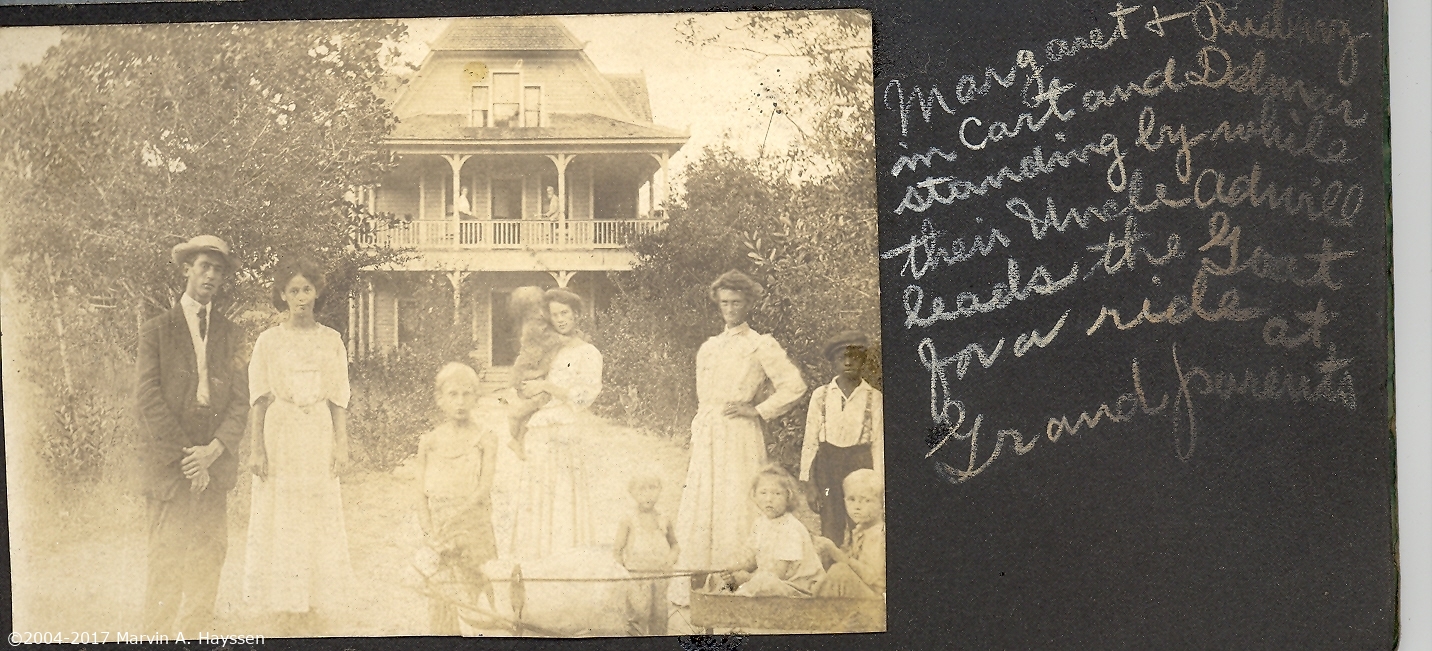 Margaret & Rudwig
in Cart and Delmar
standing by while
their Uncle Adwill
leads the Goat
for a ride at
Grand parents
©2004-2017 Marvin A. Hayssen